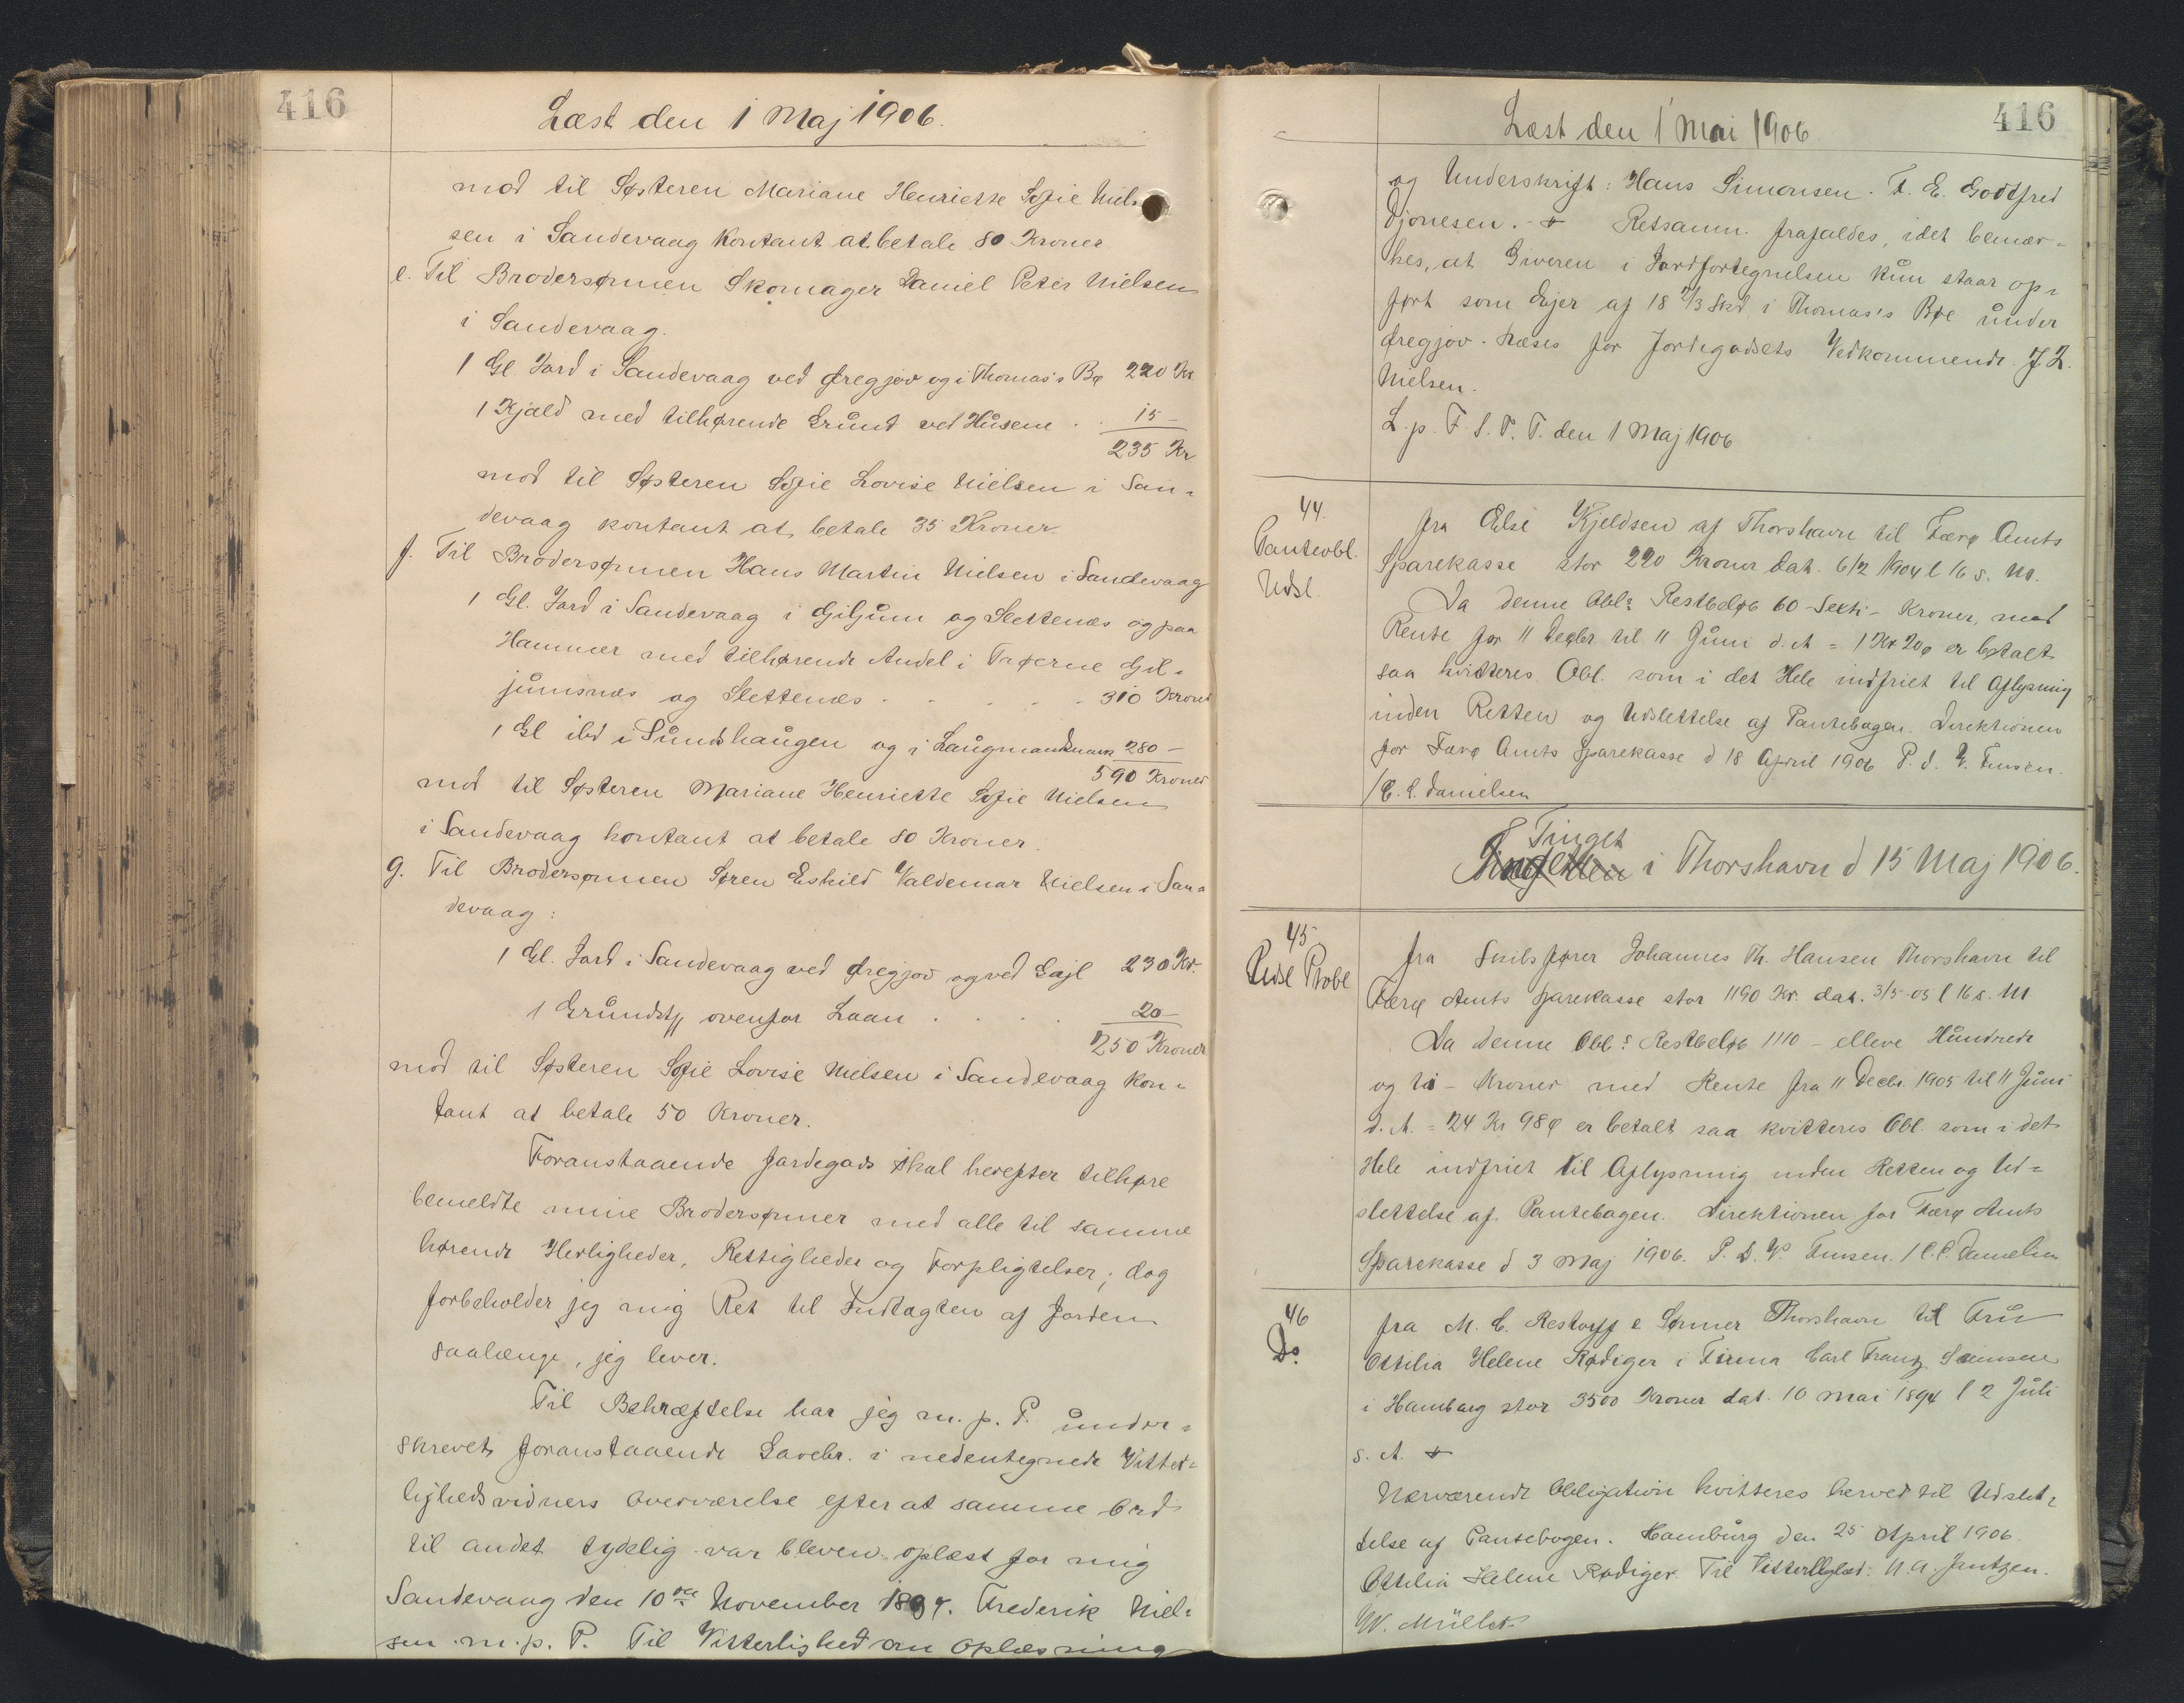 416
Læst den 1 Maj 1906.
mod til Søsteren Mariane Henriette Sofie Niel-
sen i Sandevaag kontant at betale 80 Kroner
e. Til Brodersønnen Skomager Daniel Peter Nielsen
i Sandevaag.
1 Gl Jord i Sandevaag ved Øregjov og i Thomas's Bø 220 Kr
1 Kjald med tilhørende Grund ved Husene . . 15 -
235 Kr
mod til Søsteren Sofie Lovise Nielsen i San-
devaag kontant at betale 35 Kroner
f. Til Brodersønnen Hans Martin Nielsen i Sandevaag
1 Gl. Jord i Sandevaag i Giljum og Slettenæs og paa
Hammer med tilhørende Andel i Trøerne Gil-
jumsnæs og Slettenæs . . . . . 310 Kroner
1 Gl ibd i Sundshaugen og i Laugmandsnam 280 -
590 Kroner
mod til Søsteren Mariane Henriette Sofie Nielsen
i Sandevaag kontant at betale 80 Kroner.
g. Til Brodersønnen Søren Eskild Valdemar Nielsen i San-
devaag:
1 Gl. Jord i Sandevaag ved Øregjov og ved Gajl 230 Kr.
1 Grundst. ovenfor Laan . . . . 20 -
250 Kroner
mod til Søsteren Sofie Lovise Nielsen i Sandevaag kon-
tant at betale 50 Kroner.
Foranstaaende Jordegods skal herefter tilhøre
bemeldte mine Brodersønner med alle til samme
hørende Herligheder, Rettigheder og Forpligtelser; dog
forbeholder jeg mig Ret til Indtægten af Jorden
saalænge, jeg lever.
Til Bekræftelse har jeg m. p. P. under-
skrevet foranstaaende Gavebr. i nedentegnede Vitter-
lighedsvidners Overværelse efter at samme Ord
til andet tydelig var bleven oplæst for mig
Sandevaag den 10de November 1897. Frederik Niel-
sen m. p. P. Til Vitterlighed om Oplæsning
Læst den 1 Mai 1906
416
og Underskrift: Hans Simonsen. F. E. Godtfred
Djonesen. - Retsanm. frafaldes, idet bemær-
kes, at Giveren i Jordfortegnelsen kun staar op-
ført som Ejer af 18 2/3 Skd i Thomas's Bøe under
Øregjov. Læses for Jordegodsets Vedkommende. J. L.
Nielsen.
L. p. F. S. P. T. den 1 Maj 1906
44.
Panteobl.
Udsl.
fra Else Kjeldsen af Thorshavn til Færø Amts
Sparekasse stor 220 Kroner dat. 6/12 1904 l 16 s. M.
Da denne Obls Restbeløb 60 - Sexti - Kroner, med
Rente for 11 Decbr til 11 Juni d. A = 1 Kr 20ø er betalt
saa kvitteres Obl. som i det Hele indfriet til Aflysning
inden Retten og Udslettelse af Pantebogen. Direktionen
for Færø Amts Sparekasse d 18 April 1906 P. D. V. Finsen.
/ C. C. Danielsen
Tinget
i Thorshavn d 15 Maj 1906.
45
Udsl Ptobl
fra Skibsfører Johannes Th. Hansen Thorshavn til
Færø Amts Sparekasse stor 1190 Kr. dat. 3/5-05 l 16 s. M
Da denne Obls Restbeløb 1110 - elleve Hundrede
og ti - Kroner med Rente fra 11 Decbr. 1905 til 11 Juni
d. A. = 24 Kr 98ø er betalt saa kvitteres Obl. som i det
Hele indfriet til Aflysning inden Retten og Ud-
slettelse af Pantebogen. Direktionen for Færø Amts
Sparekasse d 3 Maj 1906. P. D. V. Finsen. / C. C. Danielsen
46
Do.
fra M. C. Restorff & Sønner Thorshavn til Fru
Ottilia Helene Rødiger i Firma Carl Franz Siemsen
i Hamborg stor 3500 Kroner dat. 10 Mai 1894 l 2 Juli
s. A.
Nærværende Obligation kvitteres herved til Udslet-
telse af Pantebogen. Hamburg den 25 April 1906.
Ottilia Helene Rødiger. Til Vitterlighed: N. A. Jantzen.
W. Müller